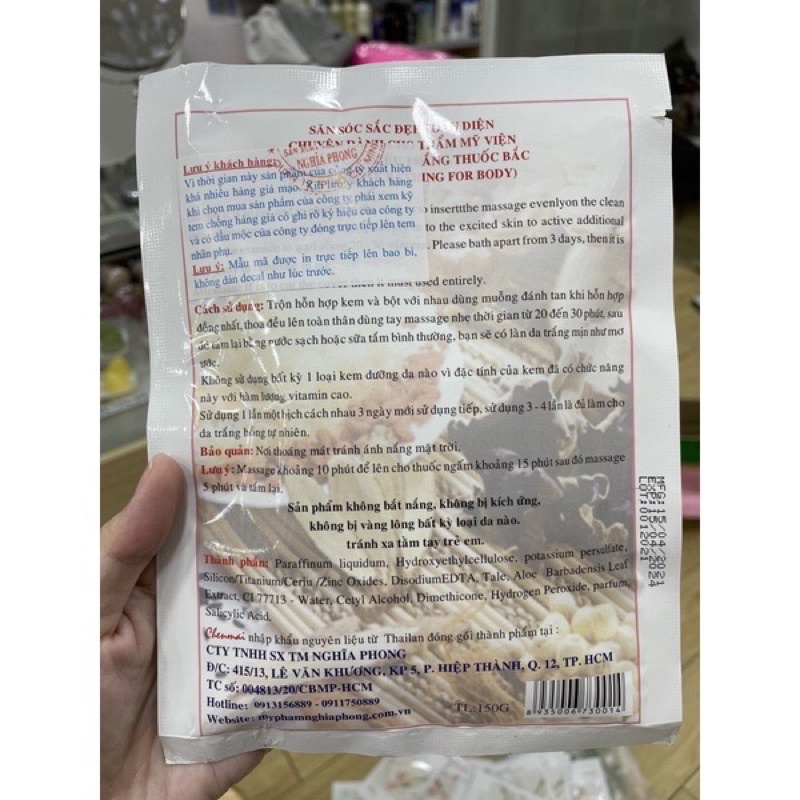 SĂN SÓC SẮC ĐẸP DIỆN
THẨM MỸ VIỆN
TRẮNG THUỐC BẮC
FOR BODY)
NGHĨA PHONG
Lưu ý khách hàng:
Vì thời gian này sản phẩm của công ty xuất hiện
khá nhiều hàng giả mạo. khách hàng
khi chọn mua sản phẩm của công ty phải xem kỹ
tem chống hàng giả có ghi rõ ký hiệu của công ty
và có dấu mộc của công ty đóng trực tiếp lên tem
nhãn phụ.
Lưu ý: Mẫu mã được in trực tiếp lên bao bì,
không dán decal như lúc trước.
insertttthe massage evenlyon the clean
to the excited skin to active additional
. Please bath apart from 3 days, then it is
used entirely.
Cách sử dụng: Trộn hỗn hợp kem và bột với nhau dùng muỗng đánh tan khi hỗn hợp
đồng nhất, thoa đều lên toàn thân dùng tay massage nhẹ thời gian từ 20 đến 30 phút, sau
đó tắm lại bằng nước sạch hoặc sữa tắm bình thường, bạn sẽ có làn da trắng mịn như mơ
ước.
Không sử dụng bất kỳ 1 loại kem dưỡng da nào vì đặc tính của kem đã có chức năng
này với hàm lượng vitamin cao.
Sử dụng 1 lần một bịch cách nhau 3 ngày mới sử dụng tiếp, sử dụng 3 - 4 lần là đủ làm cho
da trắng bóng tự nhiên.
Bảo quản: Nơi thoáng mát tránh ánh nắng mặt trời.
Lưu ý: Massage khoảng 10 phút để lên cho thuốc ngấm khoảng 15 phút sau đó massage
5 phút và tắm lại.
Sản phẩm không bắt nắng, không bị kích ứng,
không bị vàng lông bất kỳ loại da nào.
tránh xa tầm tay trẻ em.
Thành phần: Paraffinum liquidum, Hydroxyethylcellulose, potassium persulfate,
Silicon/Titanium/Ceriu /Zinc Oxides, DisodiumEDTA, Talc, Aloe Barbadensis Leaf
Extract, CI 77713 - Water, Cetyl Alcohol, Dimethicone, Hydrogen Peroxide, parfum,
Salicylic Acid.
Chenmai nhập khẩu nguyên liệu từ Thailan đóng gói thành phẩm tại :
CTY TNHH SX TM NGHĨA PHONG
Đ/C: 415/13, LÊ VĂN KHƯƠNG, KP 5, P. HIỆP THÀNH, Q. 12, TP. HCM
TC số: 004813/20/CBMP-HCM
Hotline: 0913156889 - 0911750889
Website: myphamnghiaphong.com.vn
TL:150G
8 935006 730014
MFG:15/04/2021
EXP:15/04/2024
LOT:0012021